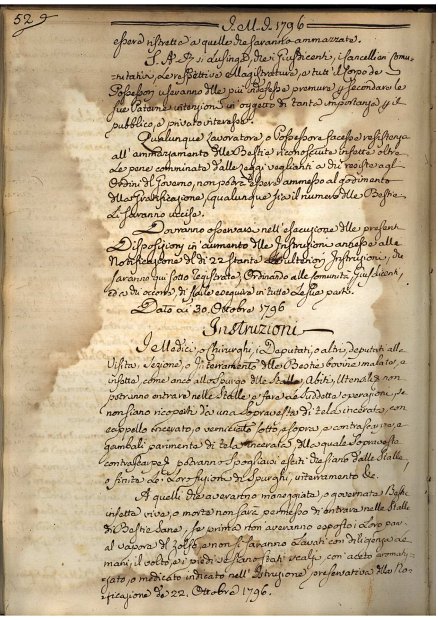 529
I. M. I. 1796
essere ristrette a quelle che saranno ammazzate.
S. A. R. si Lusinga, che i Giusdicenti, i Cancellieri Comu-
nitativi, Le respettive Magistrature, e tutt' il Corpo de
Possessori useranno delle più premure p secondare le
Sue Paterne intenzioni in oggetto di tanta importanza p il
pubblico, e privato interesse.
Qualunque Lavoratore o Possessore facesse resistenza
all' ammazzamento delle Bestie riconosciute infette oltre
Le pene comminate dalle Leggi veglianti a chi resiste agli
Ordini del Governo, non potrà essere ammesso al godimento
della Gratificazione, qualunque sia il numero delle Bestie
Li saranno uccise.
Dovranno osservarsi nell' esecuzione delle presenti
Disposizioni in aumento delle Instruzioni annesse alla
Notificazione del dì 22 stante Le ulteriori Instruzioni, che
saranno qui sotto Registrate, Ordinando alle Comunità, Giusdicenti,
ed a chi occorra, di farle eseguire in tutte Le sue parti.
Dato ai 30. Ottobre 1796
Instruzioni
I Medici, o Chirurghi, i Deputati, o altri, deputati alla
Visita, Sezione, o Interramento delle Bestie bovine malate, e
infette, come anco allo Spurgo delle Stalle, Abiti, Utensili, non
potranno entrare nelle Stalle e fare le suddette operazioni, se
non siano ricoperti da una Sopravesta di tela incerata, con
cappello incerato, o verniciato sotto, e sopra, e contrascarpe, e
gambali parimente di tela incerata, della quale Sopravesta
contrascarpe potranno spogliarsi esciti che siano dalle Stalle
o finita La Loro fusione di Spurghi, interramento &c.
A quelli che averanno maneggiata, o governata Bestie
infette vive, o morte non sarà permesso di entrare nelle Stalle
di Bestie Sane, se prima non averanno esposti i Loro panni
al vapore di Zolfo, e non si saranno Lavati con diligenza Le
mani, il volto, e i piedi se siano stati scalzi, con aceto aromatiz-
zato, o medicato indicato nell' Istruzione preservativa della No-
tificazione de' 22. Ottobre 1796.